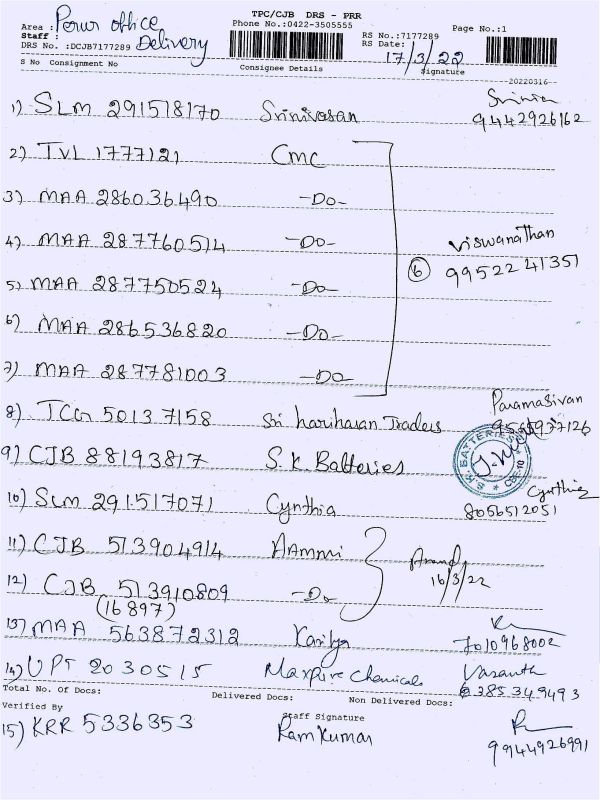 TPC/CJB DRS - PRR
Area : Perur office
Phone No.:0422-3505555
Page No.:1
Staff : Delivery
RS No.:7177289
DRS No. :DCJB7177289
RS Date: 17/3/22
S No Consignment No Consignee Details Signature
20220316
1) SLM 291518170 Srinivasan 9442926162
2) TVL 1777121 CMC
3) MAA 286036490 -Do-
4) MAA 287760514 -Do- Viswanathan
5) MAA 287750524 -Do- (6) 99522 41351
6) MAA 286536820 -Do-
7) MAA 287781003 -Do-
8) TCG 5013 7158 Sri hariharan Traders Paramasivan
9) CJB 88193817 S.K. Batteries
S.K. BATTERIES CBE-10
10) SLM 291517071 Cynthia Cynthia 8056512051
11) CJB 513904914 AAmmi Anand
12) CJB 513910809 -Do- 16/3/22
(16897)
13) MAA 563872312 7010968002
14) UPT 2030515 Maxpure Chemicals Vasanth
6385349493
Total No. of Docs: Delivered Docs: Non Delivered Docs:
Verified By Staff Signature
15) KRR 5336353 Ramkumar 9944926991